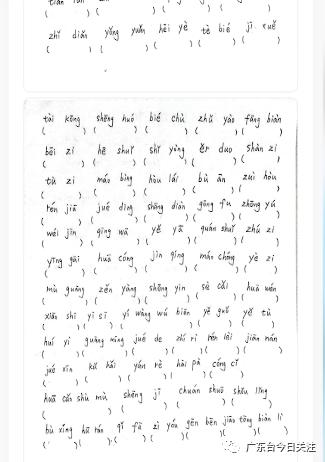 zhǐ diǎn yǒng yuǎn hēi yè tè bié jī xuě
tài kōng shēng huó bié chù zhǔ yào fāng biàn
bēi zi hē shuǐ shǐ yòng ěr duo shàn zi
tù zi máo bìng hòu lái bù ān zuì hòu
rén jiā jué dìng shāng diàn gōng fu zhōng yú
wéi jīn qīng wā yě yā quán shuǐ zhú zi
yīng gāi huā cóng jìn qíng màn cháng yè zi
mù guāng zěn yàng shēng yīn sè cǎi huà wén
xiǎn shì yì si yǐ wǎng wú biān yě guǒ yě tù
huí yì guāng míng jué de zhí rì rén lèi jiān nán
jué xīn kū hǎi yán rè hài pà cóng cǐ
huā cǎo shù mù shēng jī chuán shuō shǒu lǐng
bù xíng hū rán qǐ fā zì yóu gēn běn jiāo tōng biàn lì
广东台今日关注